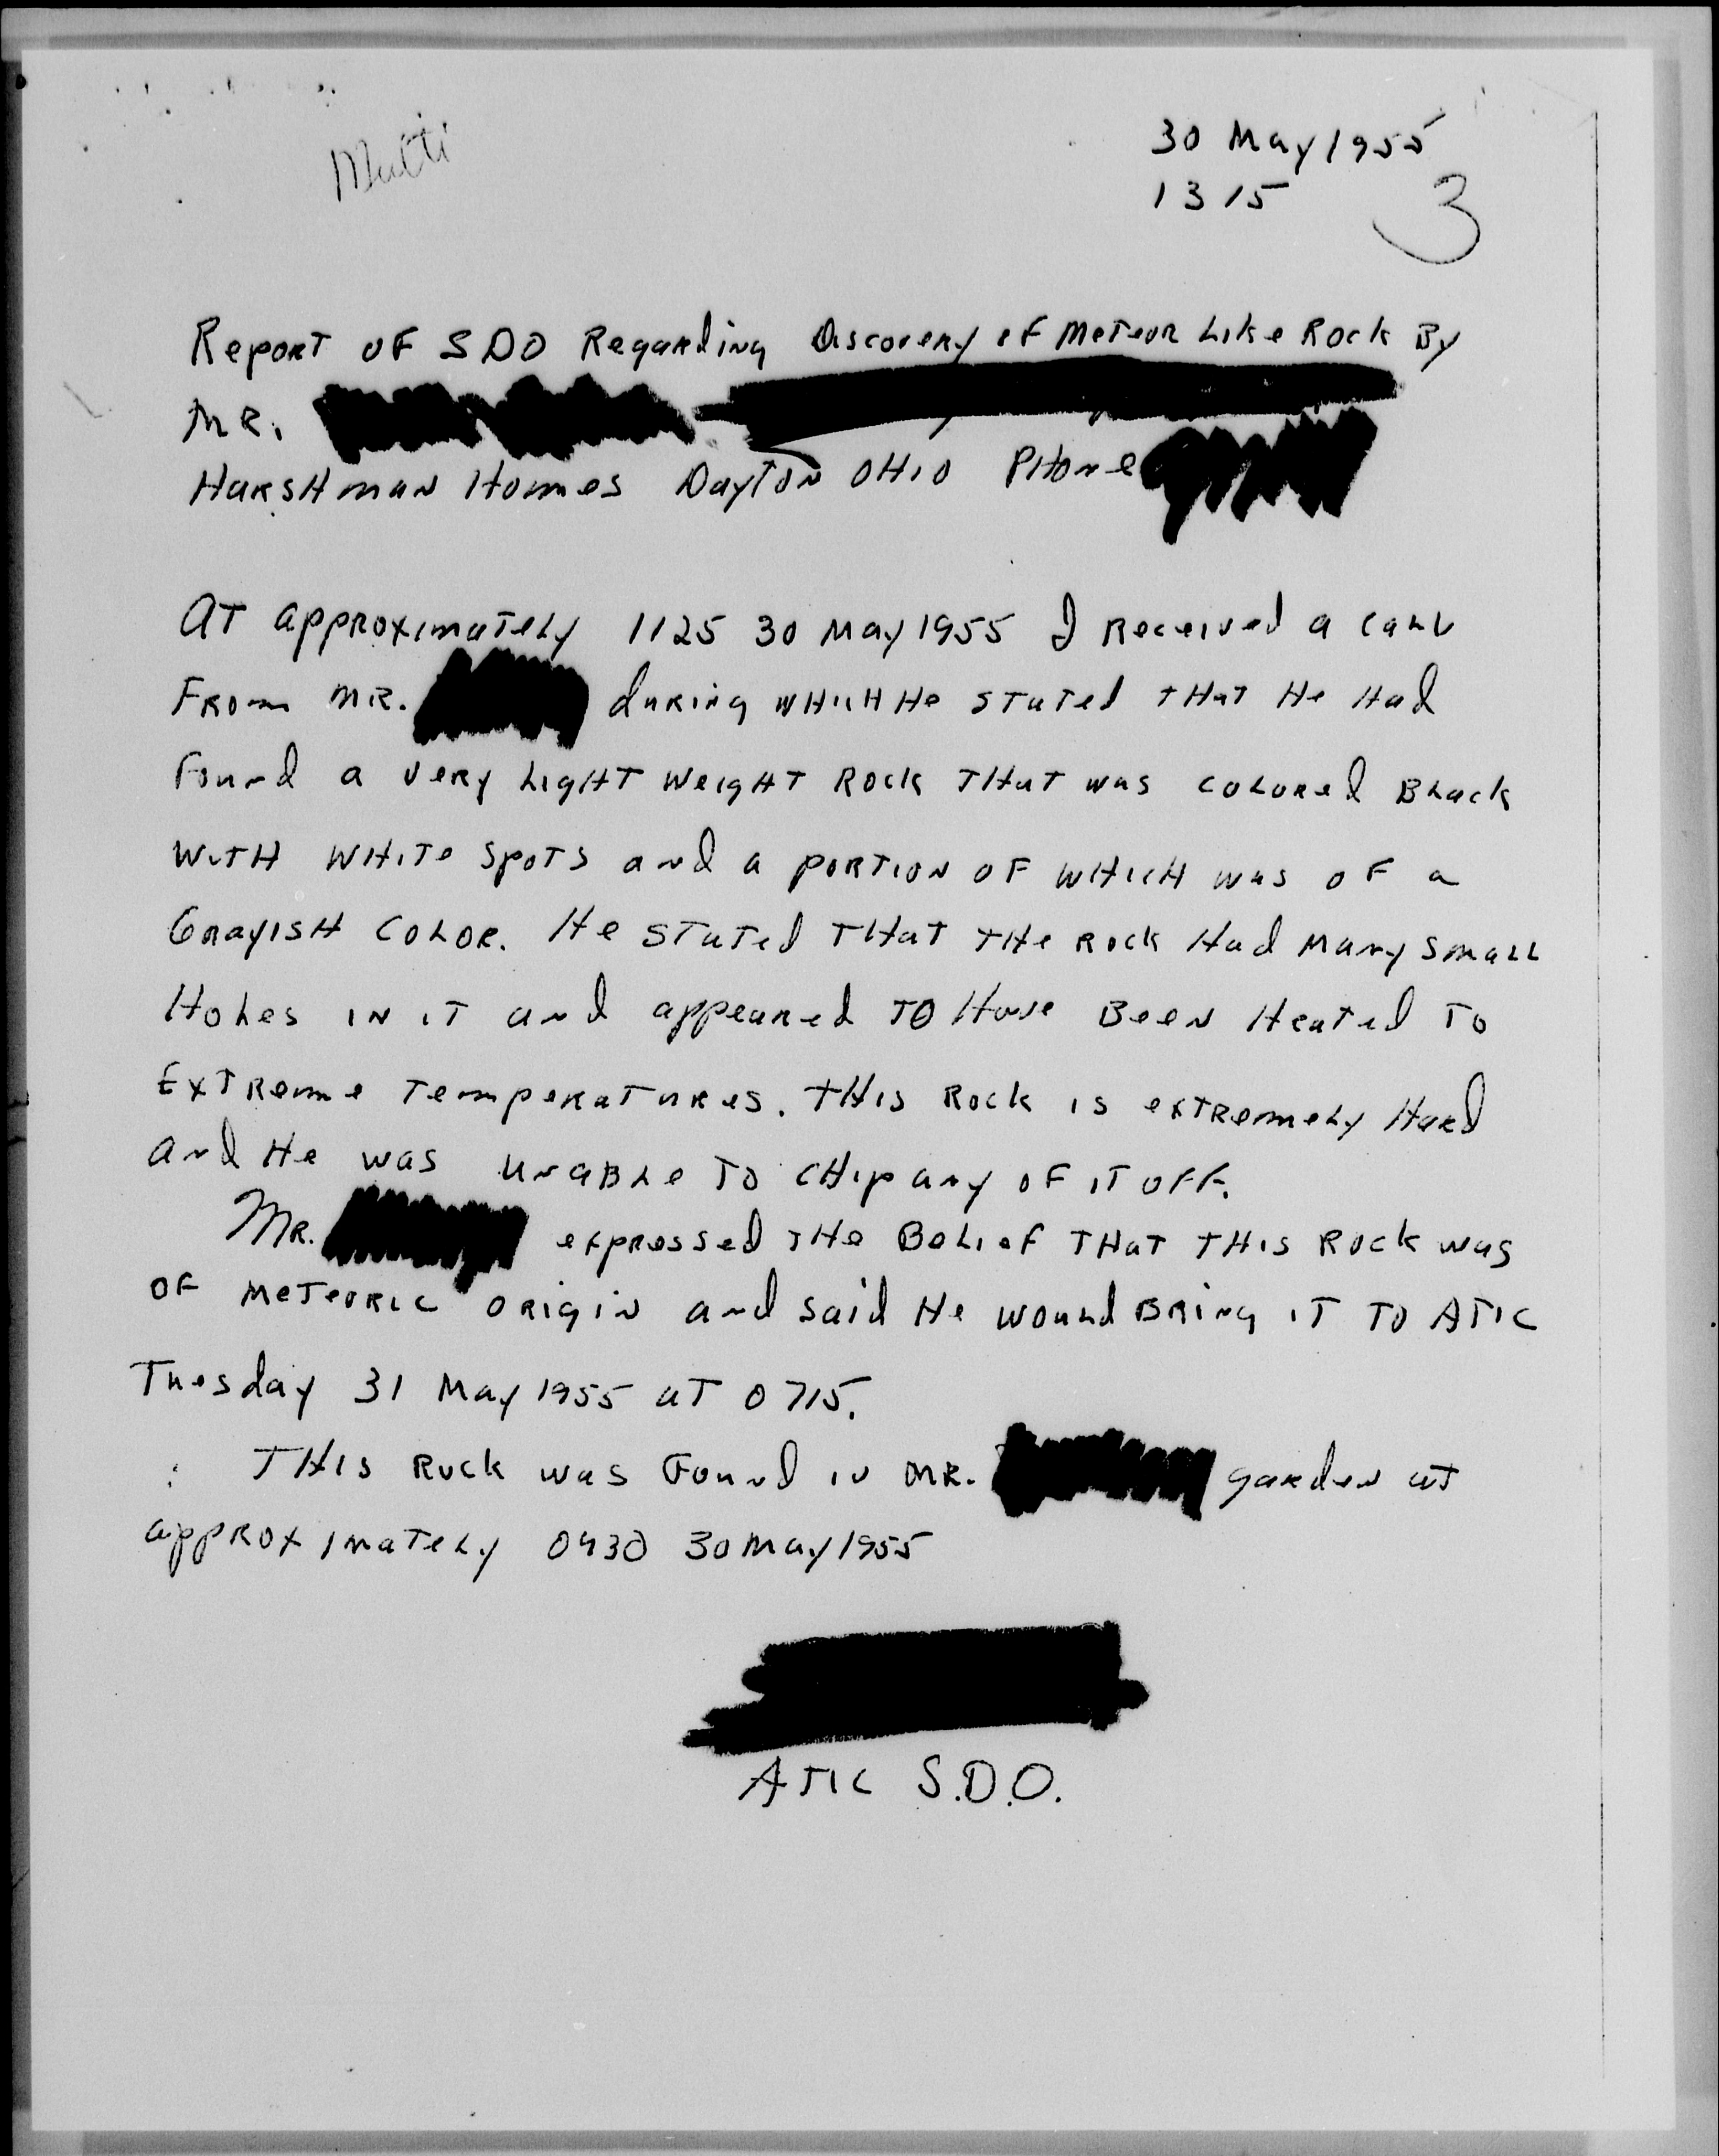 30 May 1955
1315
3
Report of SDO Regarding Discovery of Meteor Like Rock By
MR.
Harshman Homes Dayton Ohio Phone
At approximately 1125 30 May 1955 I Received a call
From MR. during which He stated that He Had
Found a very Light Weight Rock that was colored Black
with white spots and a portion of which was of a
Grayish color. He stated that the rock Had many small
Holes in it and appeared to Have Been Heated to
Extreme Temperatures. This Rock is extremely Hard
and He was unable to chip any of it off.
MR. expressed the Belief that this Rock was
of meteoric origin and said He would Bring it to ATIC
Tuesday 31 May 1955 at 0715.
This Rock was Found in MR. garden at
approximately 0930 30 May 1955
ATIC S.D.O.